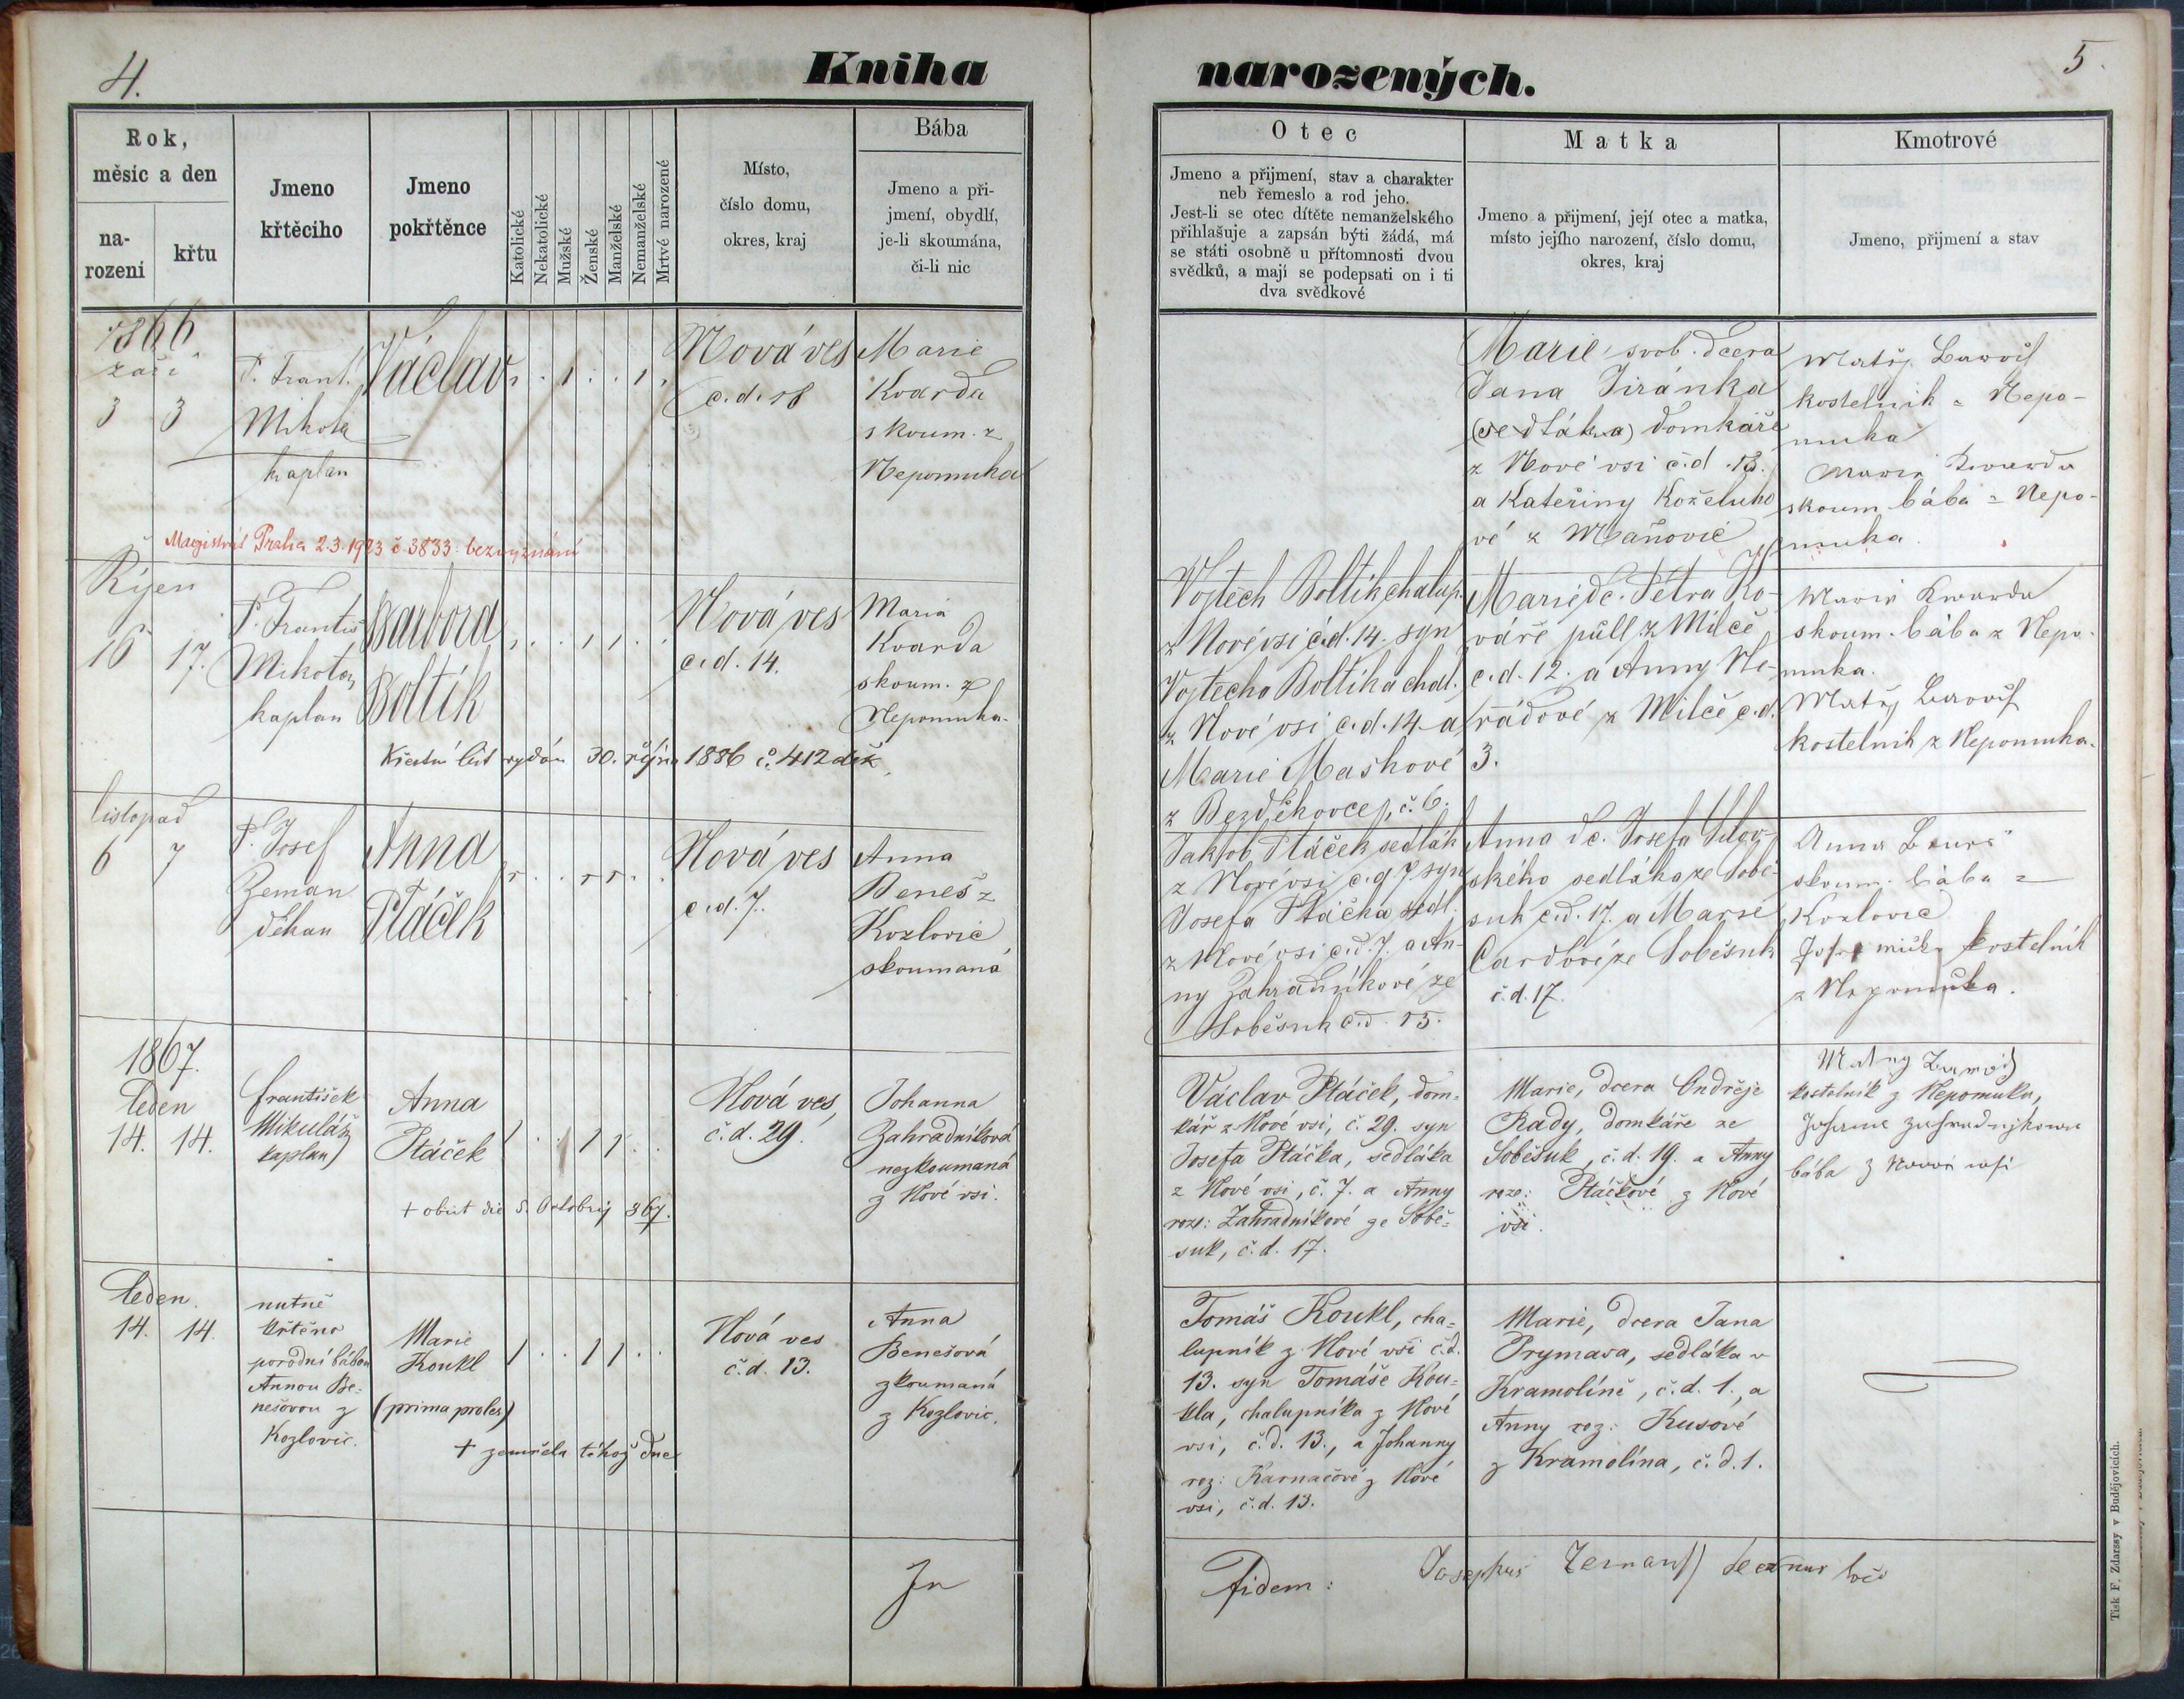 4.
Kniha
Rok,
měsíc a den
na-
rození
křtu
Jmeno
křtěcího
Jmeno
pokřtěnce
Katolické
Nekatolické
Mužské
Ženské
Manželské
Nemanželské
Mrtvé narozené
Místo,
číslo domu,
okres, kraj
Bába
Jmeno a při-
jmení, obydlí,
je-li skoumána,
či-li nic
1866
září
3 3
P. Frant.
Mikota
kaplan
Václav
Nová ves
c. d. 18
Marie
Kvarda
skoum. z
Nepomuka
Magistrát Praha 2.3.1923 č 3833: bez vyznání
Říjen
16 17.
P. Františ
Mikota
kaplan
Barbora
Boltík
Nová ves
c. d. 14.
Maria
Kvarda
skoum. z
Nepomuka
Křestní list vydán 30. října 1886 č. 412
listopad
6 7
P. Josef
Zeman
děkan
Anna
Ptáček
Nová ves
c. d. 7.
Anna
Beneš z
Kozlovic
skoumaná
1867.
Leden
14. 14.
František
Mikuláš
kaplan
Anna
Ptáček
Nová ves,
č. d. 29.
Johanna
Zahradníková
nezkoumaná
z Nové vsi.
+ obiit die 5. Octobris 867.
Leden.
14. 14.
nutně
křtěna
porodní bábou
Annou Be-
nešovou z
Kozlovic.
Marie
Koukl
(prima proles)
+ zemřela téhož dne
Nová ves
č. d. 13.
Anna
Benešová
zkoumaná
z Kozlovic.
In
narozených.
5.
Otec
Jmeno a přijmení, stav a charakter
neb řemeslo a rod jeho.
Jest-li se otec dítěte nemanželského
přihlašuje a zapsán býti žádá, má
se státi osobně u přítomnosti dvou
svědků, a mají se podepsati on i ti
dva svědkové
Matka
Jmeno a přijmení, její otec a matka,
místo jejího narození, číslo domu,
okres, kraj
Kmotrové
Jmeno, přijmení a stav
Marie, svob. dcera
Jana Jiránka
(sedláka) domkáře
z Nové vsi č. d. 18.
a Kateřiny Koželuho
vé z Maňovic
Matěj
kostelnik z Nepo-
muka
Marie Kwarda
skoum bába z Nepo-
muka.
Vojtech Boltik chalup.
z Nové vsi č.d. 14. syn
Vojtecha Boltika chal.
z Nové vsi c.d. 14 a
Marie Maškové
z Bezděkovce, č. 6.
Marie dc. Petra Ko-
váře půll z Milče
c. d. 12. a Anny Ne-
řádové z Milče c. d.
3.
Marie Kwarda
skoum. bába z Nepo-
muka.
Matěj
kostelnik z Nepomuka.
Jakob Ptáček sedlák
z Nové vsi c. d 7 syn
Josefa Ptáčka sedl.
z Nové vsi c.d. 7. a An-
ny Zahradníkové ze
Soběsuk c.d. 15.
Anna dc. Josefa
ského sedláka ze Sobě-
suk c.d. 17. a Marie
ze Soběsuk
č. d. 17.
Anna
skoum. bába z
Kozlovic
kostelník
z Nepomuka.
Václav Ptáček, dom-
kář z Nové vsi, č. 29. syn
Josefa Ptáčka, sedláka
z Nové vsi, č. 7. a Anny
roze: Zahradníkové ze Sobě-
suk, č. d. 17.
Marie, dcera Ondřeje
Rady, domkáře ze
Soběsuk, č. d. 19. a Anny
roze: Ptáčkové z Nové
vsi.
kostelník z Nepomuka,
bába z Nové vsi
Tomáš Koukl, cha-
lupník z Nové vsi č.d.
13. syn Tomáše Kou-
kla, chalupníka z Nové
vsi, č. d. 13., a Johanny
roz: Karnačové z Nové
vsi, č. d. 13.
Marie, dcera Jana
Prymasa, sedláka v
Kramolíně, č. d. 1., a
Anny roz: Kusové
z Kramolína, č. d. 1.
fidem: Josephus Zeman decanus loci
Tisk F. Zdarssy v Budějovicích.